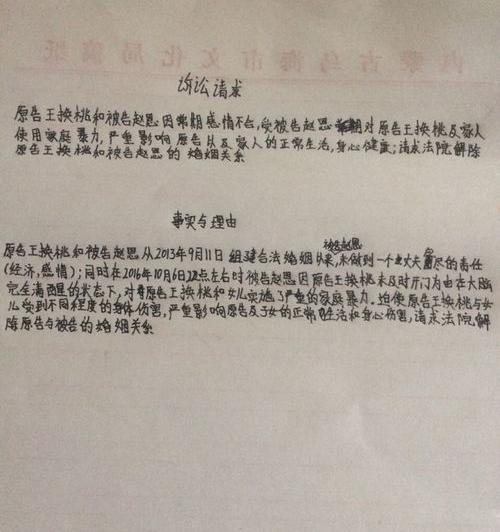 内蒙古乌海市文化局稿纸
诉讼请求
原告王换桃和被告赵恩因常期感情不合,受被告赵恩 对原告王换桃及家人
使用家庭暴力,严重影响原告以及家人的正常生活,身心健康;请求法院解除
原告王换桃和被告赵恩的婚姻关系
事实与理由
被告赵恩
原告王换桃和被告赵恩从2013年9月11日组建合法婚姻以来,未做到一个丈夫应尽的责任
(经济,感情);同时在2016年10月6日12点左右时被告赵恩因原告王换桃未及时开门为由在大脑
完全清醒的状态下,对原告王换桃和女儿实施了严重的家庭暴力。迫使原告王换桃与女
儿受到不同程度的身体伤害,严重影响原告及子女的正常生活和身心伤害,请求法院解
除原告与被告的婚姻关系